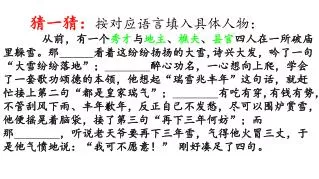 猜一猜：按对应语言填入具体人物：
从前，有一个秀才与地主、樵夫、县官四人在一所破庙
里躲雪。那______看着这纷纷扬扬的大雪，诗兴大发，吟了一句
“大雪纷纷落地”；______醉心功名，一心想向上爬，学会
了一套歌功颂德的本领，他想起“瑞雪兆丰年”这句话，就赶
忙接上第二句“都是皇家瑞气”；______有吃有穿，有钱有势，
不管刮风下雨、丰年歉年，反正自己不发愁，尽可以围炉赏雪，
他便摇晃着脑袋，接了第三句“再下三年何妨”；而
那______，听说老天爷要再下三年雪，气得他火冒三丈，于
是他气愤地说：“我可不愿意！” 刚好凑足了四句。